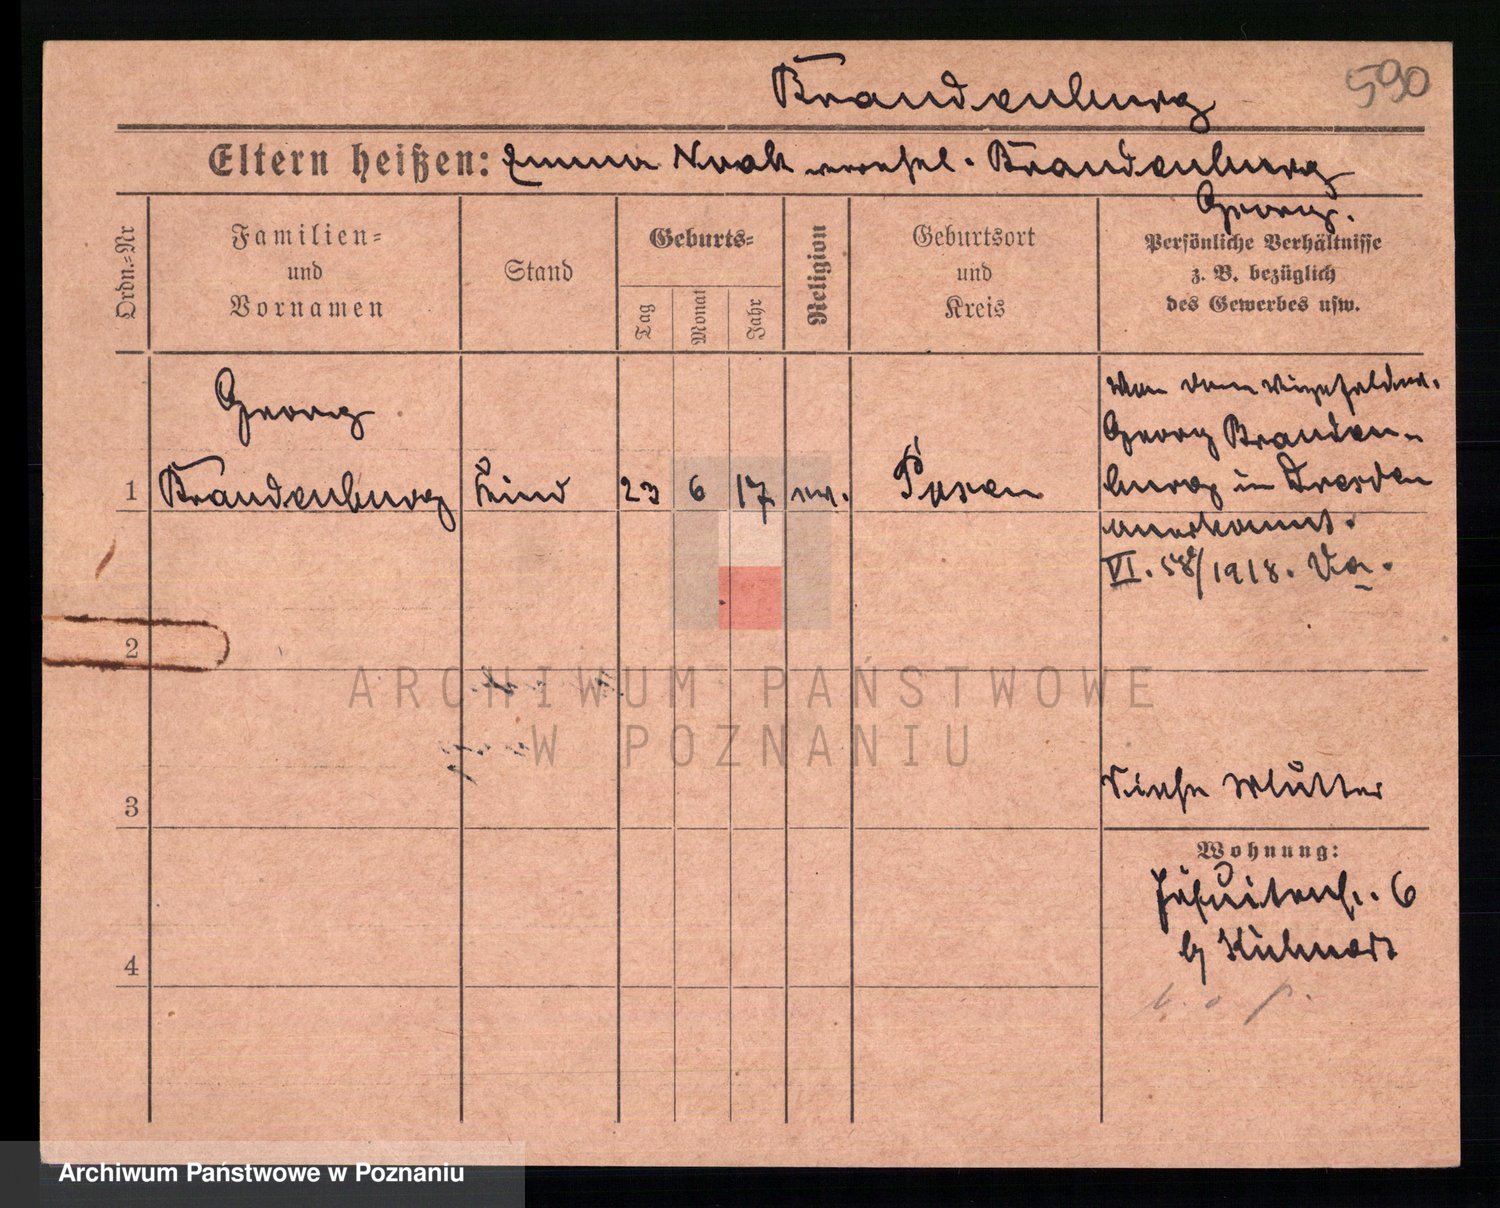 590
Brandenburg
Eltern heißen: Emma Noak verehel. Brandenburg
Georg.
Ordn.=Nr
Familien=
und
Vornamen
Stand
Geburts=
Tag
Monat
Jahr
Religion
Geburtsort
und
Kreis
Persönliche Verhältnisse
z. B. bezüglich
des Gewerbes usw.
Georg
1 Brandenburg Kind 23 6 17 ev. Posen
Von dem Vizefeldw.
Georg Branden-
burg in Dresden
anerkannt.
VI. 58/1918. Va.
2
ARCHIWUM PAŃSTWOWE
W POZNANIU
3
Siehe Mutter
Wohnung:
Jesuitenstr. 6
b/ Kühnert
4
Archiwum Państwowe w Poznaniu